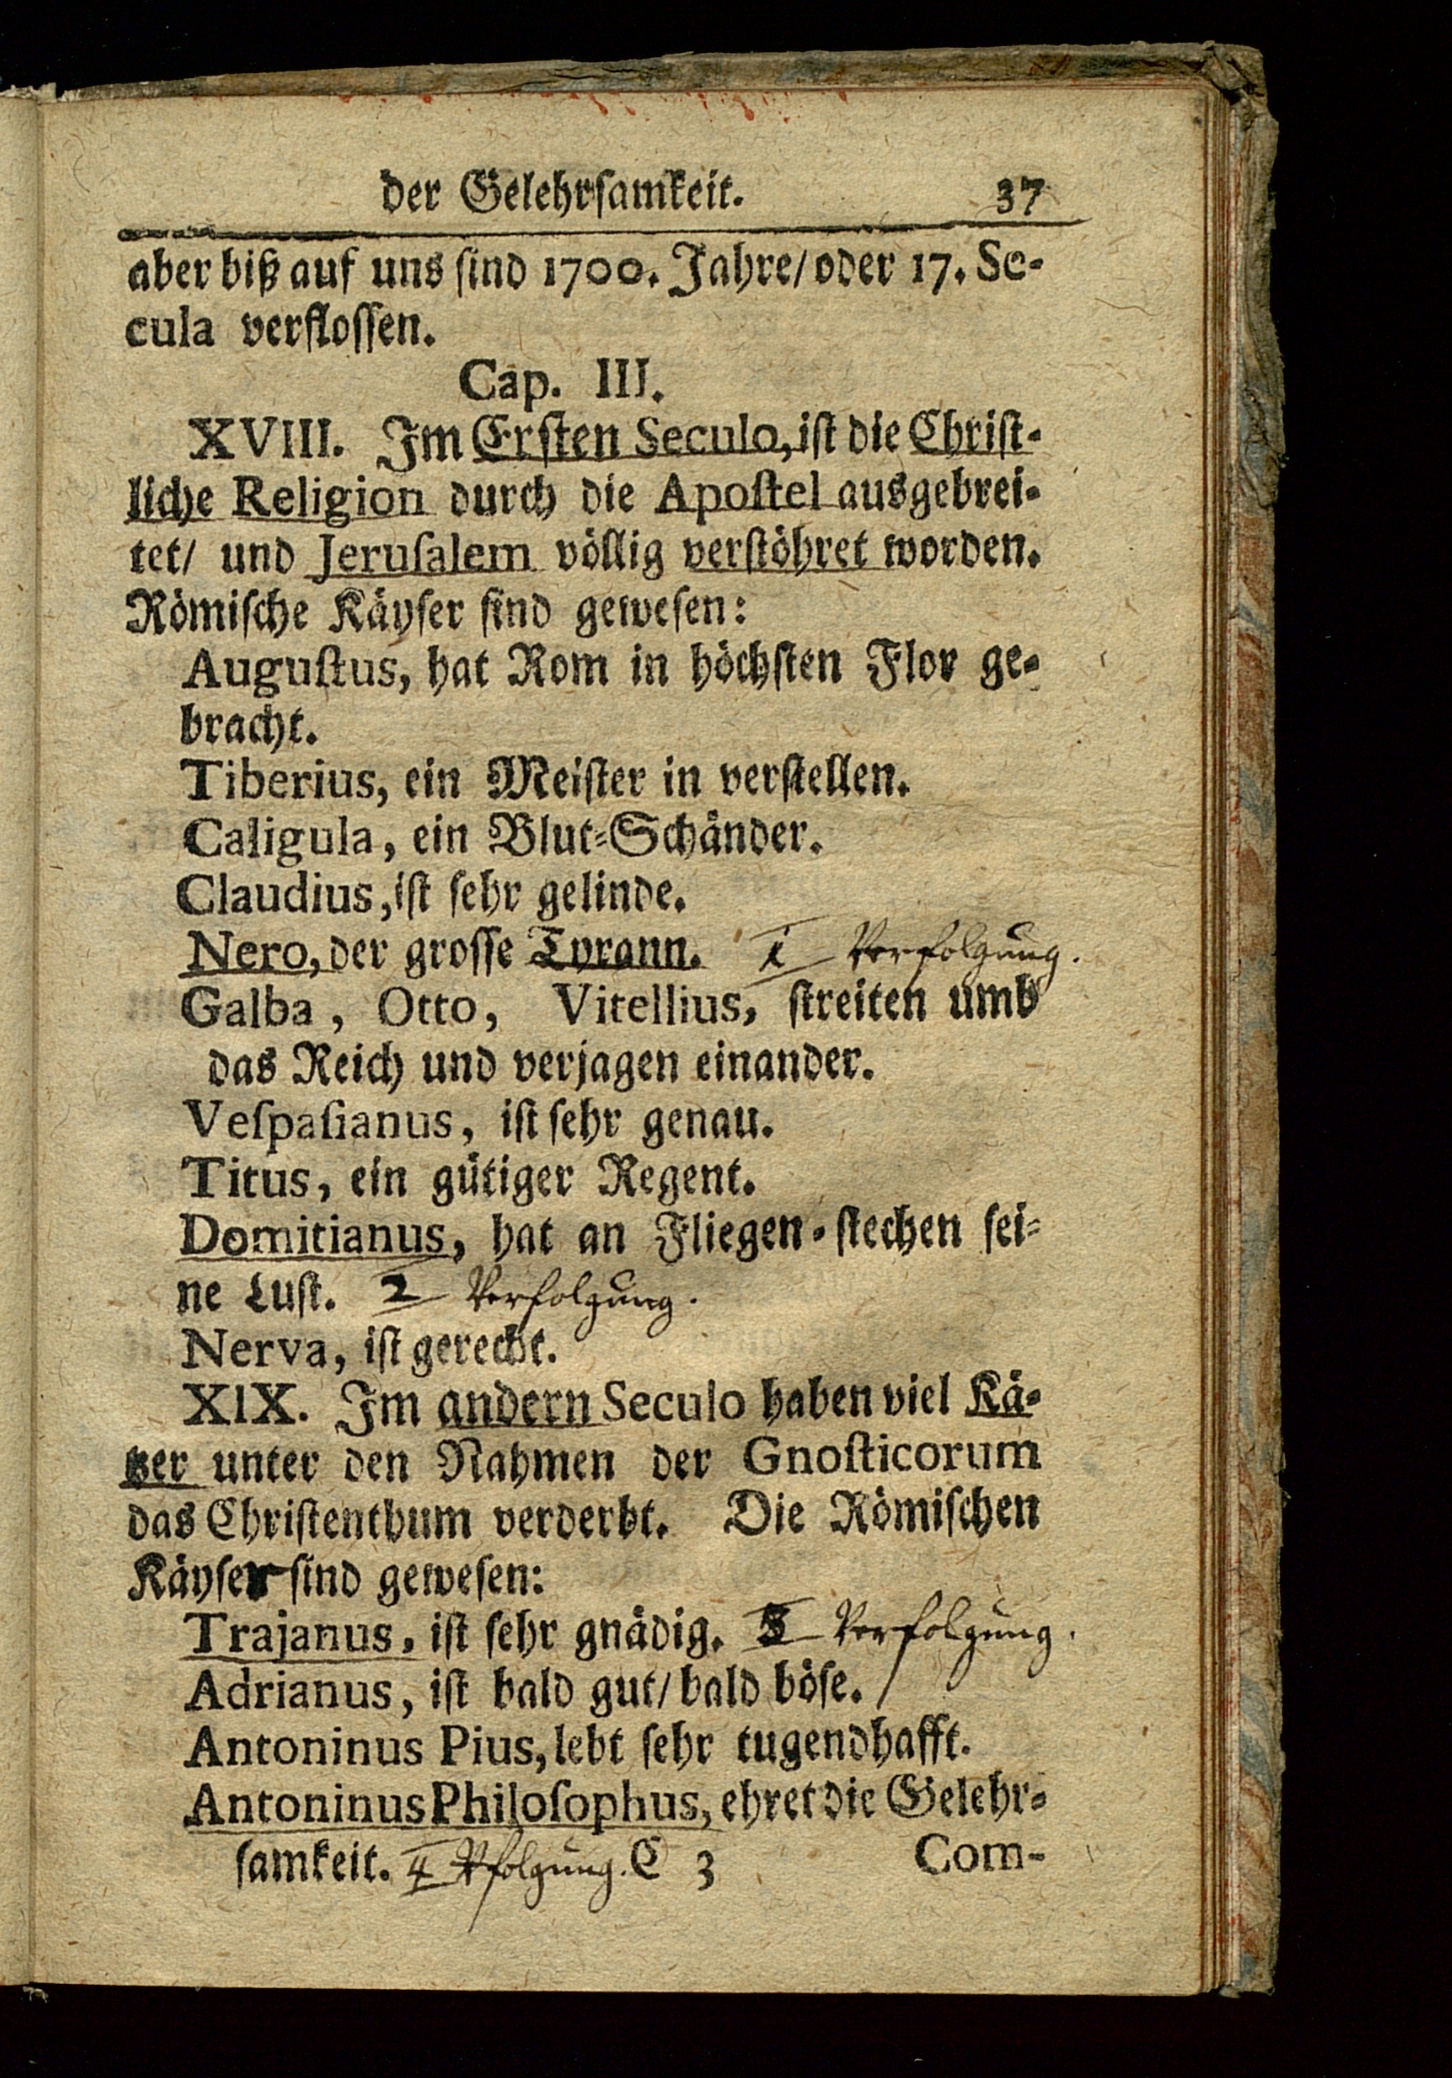 der Gelehrsamkeit. 37
aber biß auf uns sind 1700. Jahre/ oder 17. Se-
cula verflossen.
Cap. III.
XVIII. Im Ersten Seculo, ist die Christ-
liche Religion durch die Apostel ausgebrei-
tet/ und Jerusalem völlig verstöhret worden.
Römische Käyser sind gewesen:
Augustus, hat Rom in höchsten Flor ge-
bracht.
Tiberius, ein Meister in verstellen.
Caligula, ein Blut-Schänder.
Claudius, ist sehr gelinde.
Nero, der grosse Tyrann. 1 Verfolgung.
Galba, Otto, Vitellius, streiten umb
das Reich und verjagen einander.
Vespasianus, ist sehr genau.
Titus, ein gütiger Regent.
Domitianus, hat an Fliegen-stechen sei-
ne Lust. 2 Verfolgung.
Nerva, ist gerecht.
XIX. Im andern Seculo haben viel Kä-
tzer unter den Nahmen der Gnosticorum
das Christenthum verderbt. Die Römischen
Käyser sind gewesen:
Trajanus, ist sehr gnädig. 3 Verfolgung.
Adrianus, ist bald gut/ bald böse.
Antoninus Pius, lebt sehr tugendhafft.
Antoninus Philosophus, ehret die Gelehr-
samkeit. 4 Vfolgung. C 3 Com-